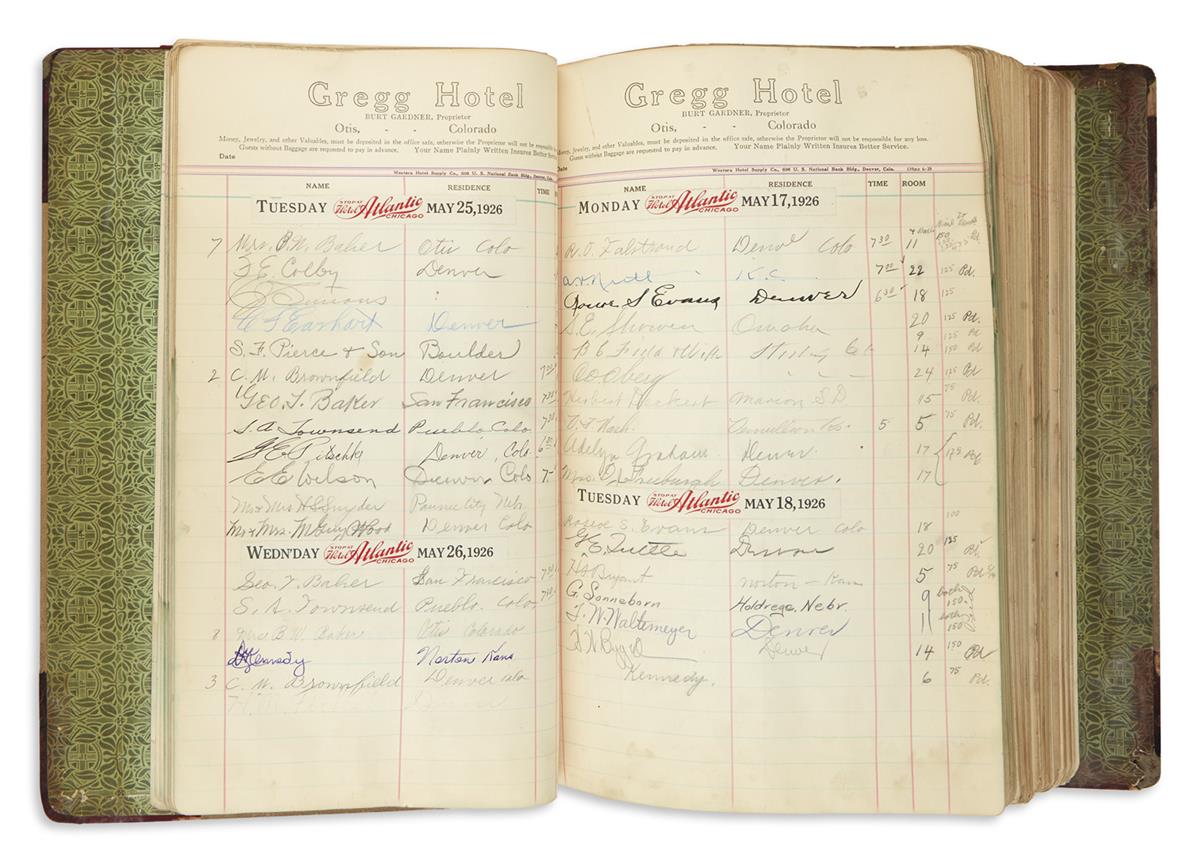 Gregg Hotel
BURT GARDNER, Proprietor
Otis, - - Colorado
Money, Jewelry, and other Valuables, must be deposited in the office safe, otherwise the Proprietor will not be responsible
Guests without Baggage are requested to pay in advance. Your Name Plainly Written Insures Better Service
Date
Western Hotel Supply Co., 606 U. S. National Bank Bldg., Denver, Colo.
NAME RESIDENCE TIME
TUESDAY STOP AT Hotel Atlantic CHICAGO MAY 25, 1926
7 Mrs. B. W. Baker Otis Colo
F. E. Colby Denver
Simons
C F Earhart Denver
S. F. Pierce & Son Boulder
2 C. M. Brownfield Denver 7
GEO. T. BAKER San Francisco 7
S. A. Townsend Pueblo Colo 7
Denver, Colo 6
E E Wilson Denver Colo 7
Mr & Mrs H S Snyder Pawnee City Neb
Mr & Mrs. Denver Colo
WEDN'DAY STOP AT Hotel Atlantic CHICAGO MAY 26, 1926
Geo. T. Baker San Francisco
S. A. Townsend Pueblo. Colo
Mrs B W Baker Otis Colorado
Kennedy Norton Kans
3 C. M. Brownfield Denver Colo
Gregg Hotel
BURT GARDNER, Proprietor
Otis, - - Colorado
Money, Jewelry, and other Valuables, must be deposited in the office safe, otherwise the Proprietor will not be responsible for any loss.
Guests without Baggage are requested to pay in advance. Your Name Plainly Written Insures Better Service.
Date
Western Hotel Supply Co., 606 U. S. National Bank Bldg., Denver, Colo.
NAME RESIDENCE TIME ROOM
MONDAY STOP AT Hotel Atlantic CHICAGO MAY 17, 1926
R. O. Falstrand Denver Colo 7 30 11
K. C. 7 00 22 125 Pd.
S Evans Denver 6 30 18 125
S. E. Showen Omaha 20 125 Pd.
9 125 Pd
B C Field & Wife Sterling Colo 14 150 Pd
C O Oberg 24 125 Pd
Herbert Marion S D 15 75 Pd
Nash Vermillion 5 5 75 Pd.
Adelyn Graham Denver 17 175 Pd
Mrs. Denver. 17
TUESDAY STOP AT Hotel Atlantic CHICAGO MAY 18, 1926
Roscoe S. Evans Denver Colo 18 100
G E Tuttle Denver 20 125 Pd.
H S Bryant Norton - Kans 5 75 Pd
G. Sonneborn Holdrege, Nebr. 9 150
F. W. Waltemeyer Denver 11 150
Denver 14 150 Pd
Kennedy. 6 75 Pd.